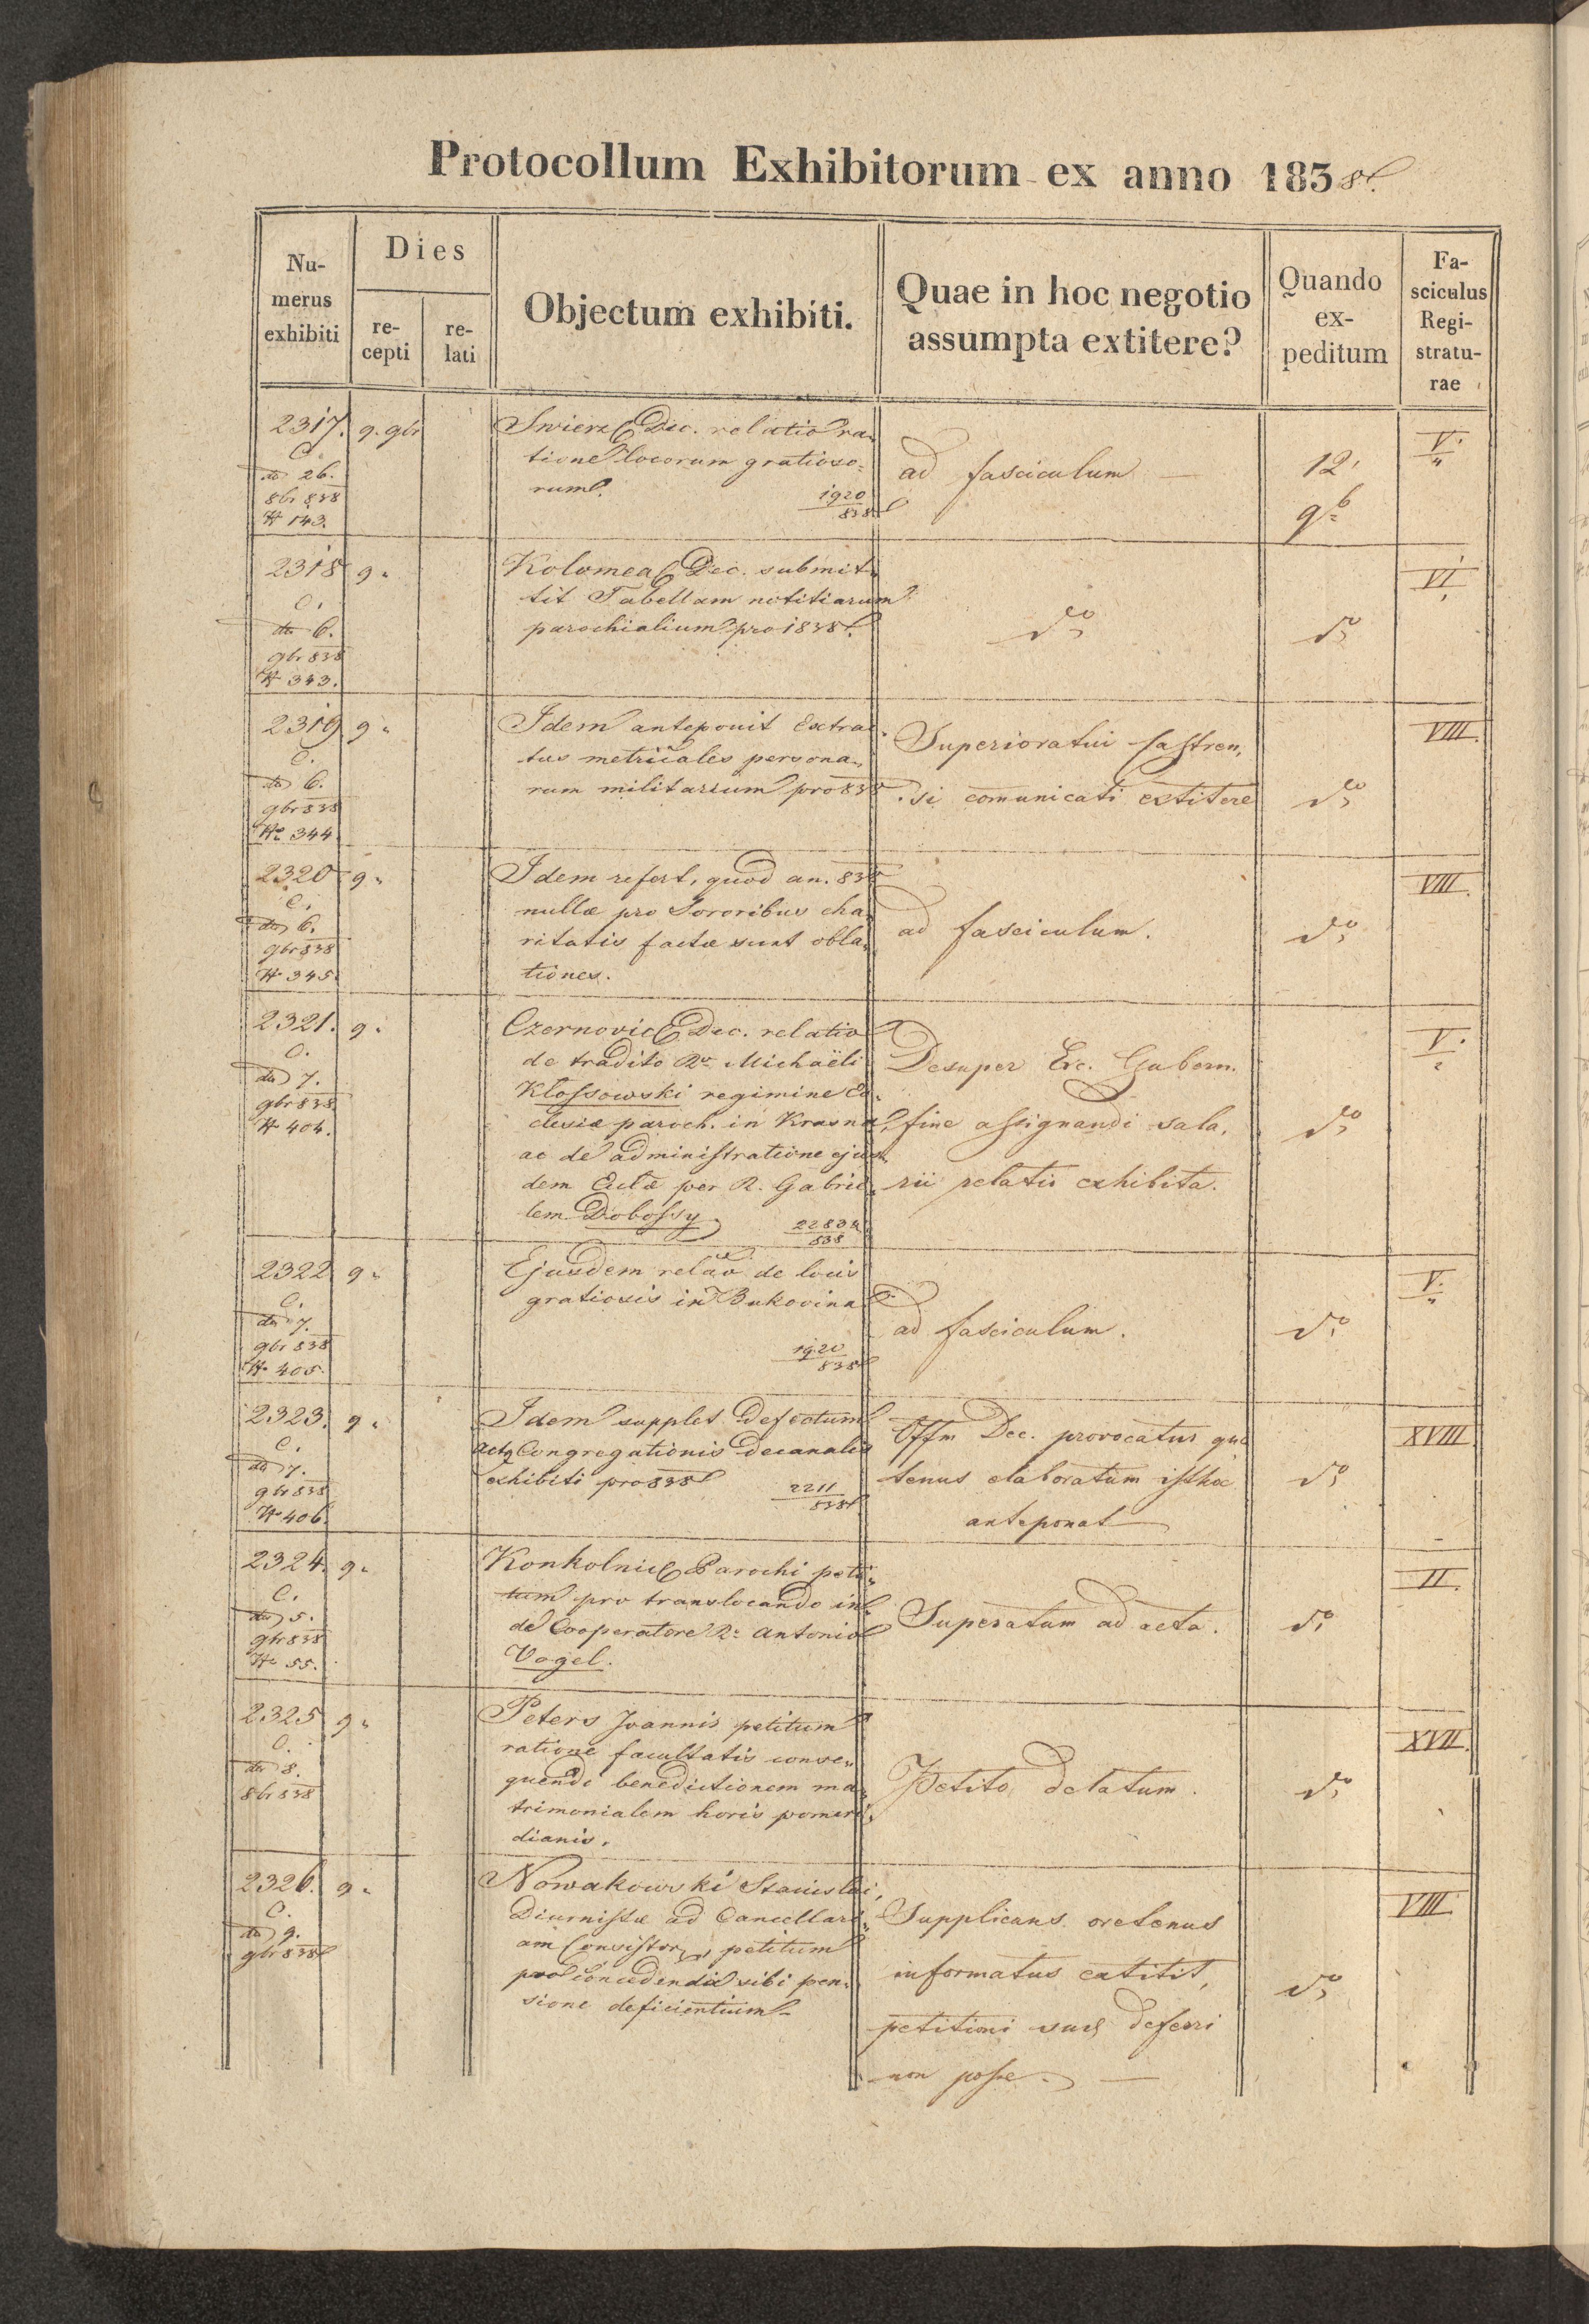 Protocollum Exhibitorum ex anno 1838.
Nu-
merus
exhibiti
Dies
re-
cepti
re-
lati
Objectum exhibiti.
Quae in hoc negotio
assumpta extitere?
Quando
ex-
peditum
Fa-
sciculus
Regi-
stratu-
rae
2317. 9. 9br
C.
dto 26.
8br 838
N 143.
Swierz Dec. relatio ra„
tione locorum gratioso„
rum.
1920
838
ad fasciculum —
12.
9b
V.
2318 9„
C.
dto 6.
9br 838
N 343.
Kolomea Dec. submit„
tit Tabellam notitiarum
parochialium pro 1838.
do
do
VI.
2319 9„
C.
dto 6.
9br 838
N 344
Idem anteponit Extrac„
tus metricales persona„
rum militarium pro 838
Superioratui Castren„
si comunicati extitere
do
VIII.
2320 9„
C.
dto 6.
9br 838
N 345.
Idem refert, quod an. 838
nullæ pro Sororibus cha„
ritatis factæ sunt obla„
tiones.
ad fasciculum.
do
VIII.
2321. 9„
C.
dto 7.
9br 838
N 404.
Czernovic Dec. relatio
de tradito Ro Michaëli
Kłossowski regimine Ec„
clesiæ paroch. in Krasna,
ac de administratione ejus„
dem Eclæ per R. Gabrie„
lem Dobossy.
2283
838
Desuper Exc. Gubern.
fine assignandi sala„
rii relatio exhibita.
do
V.
2322 9„
C.
dto 7.
9br 838
N 405.
Ejusdem relaõ de locis
gratiosis in Bukovina
1920
838
ad fasciculum.
do
V.
2323. 9„
C.
dto 7.
9br 838
N 406.
Idem supplet defectum
Congregationis Decanalis
exhibiti pro 838
2211
838
Offm Dec. provocatur qua
tenus elaboratum isthic
anteponat
do
XVIII
2324. 9„
C.
dto 5.
9br 838
N 55.
Konkolnic Parochi peti„
tum pro translocando in„
de Cooperatore R. Antonio
Vogel.
Superatum ad acta.
do
II.
2325 9„
C.
dto 8.
8br 838
Peters Joannis petitum
ratione facultatis conse„
quendi benedictionem ma„
trimonialem horis pomeri„
dianis.
Petito delatum.
do
XVII.
2326. 9„
C.
dto 9.
9br 838
Nowakowski Stanislai,
Diurnistæ ad Cancellari„
am Consistor, petitum
pro concedenda sibi pen„
sione deficientium
Supplicans oretenus
informatus extitit,
petitioni suæ deferri
non posse. —
do
VIII.